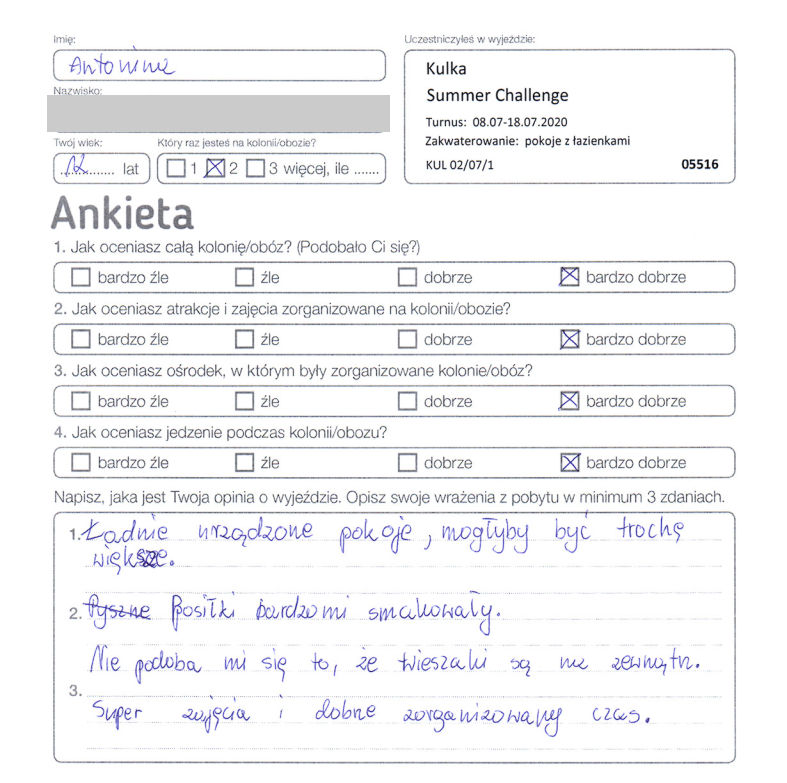 Imię:
Antonina
Uczestniczyłeś w wyjeździe:
Kulka
Summer Challenge
Turnus: 08.07-18.07.2020
Zakwaterowanie: pokoje z łazienkami
KUL 02/07/1 05516
Nazwisko:
Twój wiek:
12 lat
Który raz jesteś na kolonii/obozie?
1 2 3 więcej, ile .......
Ankieta
1. Jak oceniasz całą kolonię/obóz? (Podobało Ci się?)
bardzo źle źle dobrze bardzo dobrze
2. Jak oceniasz atrakcje i zajęcia zorganizowane na kolonii/obozie?
bardzo źle źle dobrze bardzo dobrze
3. Jak oceniasz ośrodek, w którym były zorganizowane kolonie/obóz?
bardzo źle źle dobrze bardzo dobrze
4. Jak oceniasz jedzenie podczas kolonii/obozu?
bardzo źle źle dobrze bardzo dobrze
Napisz, jaka jest Twoja opinia o wyjeździe. Opisz swoje wrażenia z pobytu w minimum 3 zdaniach.
1. Ładnie urządzone pokoje, mogłyby być trochę
większe.
2. Pyszne Posiłki bardzo mi smakowały.
Nie podoba mi się to, że wieszaki są na zewnątrz.
3.
Super zajęcia i dobrze zorganizowany czas.